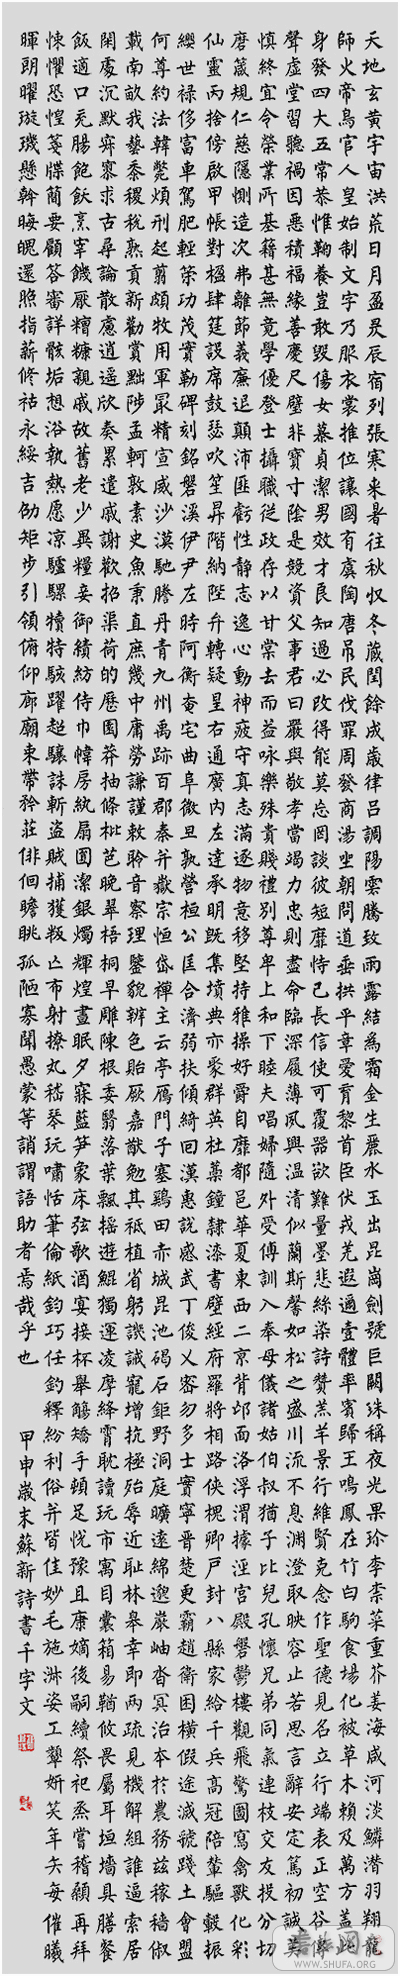 天地玄黃宇宙洪荒日月盈昃辰宿列張寒来暑往秋収冬藏閏餘成歲律呂調陽雲騰致雨露結為霜金生麗水玉出昆崗劍號巨闕珠稱夜光果珍李柰菜重芥姜海咸河淡鱗潛羽翔龍
師火帝鳥官人皇始制文字乃服衣裳推位讓國有虞陶唐吊民伐罪周發商湯坐朝問道垂拱平章愛育黎首臣伏戎羌遐邇壹體率賓歸王鳴鳳在竹白駒食場化被草木賴及萬方蓋此
身發四大五常恭惟鞠養豈敢毀傷女慕貞潔男效才良知過必改得能莫忘罔談彼短靡恃己長信使可覆器欲難量墨悲絲染詩贊羔羊景行維賢克念作聖德見名立行端表正空谷傳
聲虛堂習聽禍因惡積福緣善慶尺璧非寶寸陰是競資父事君曰嚴與敬孝當竭力忠則盡命臨深履薄夙興溫清似蘭斯馨如松之盛川流不息淵澄取映容止若思言辭安定篤初誠美
慎終宜令榮業所基籍甚無竟學優登士攝職從政存以甘棠去而益咏樂殊貴賤禮別尊卑上和下睦夫唱婦隨外受傅訓入奉母儀諸姑伯叔猶子比兒孔懷兄弟同氣連枝交友投分切
磨箴規仁慈隱惻造次弗離節義廉退顛沛匪虧性靜志逸心動神疲守真志滿逐物意移堅持雅操好爵自靡都邑華夏東西二京背邙面洛浮渭據涇宮殿磐鬱樓觀飛驚圖寫禽獸化彩
仙靈丙捨傍啟甲帳對楹肆筵設席鼓瑟吹笙昇階納陛弁轉疑星右通廣內左達承明既集墳典亦聚群英杜藁鐘隸漆書壁經府羅將相路俠槐卿戶封八縣家給千兵高冠陪輦驅轂振
纓世祿侈富車駕肥輕策功茂實勒碑刻銘磐溪伊尹左時阿衡奄宅曲阜微旦孰營桓公匡合濟弱扶傾綺回漢惠說感武丁俊乂密勿多士實寧晉楚更霸趙衛困橫假途滅虢踐土會盟
何尊約法韓斃煩刑起翦頗牧用軍最精宣威沙漠馳騰丹青九州禹跡百郡秦并嶽宗恒岱禪主云亭雁門子塞鷄田赤城昆池碣石鉅野洞庭曠遠綿邈巖岫杳冥治本於農務兹稼穡俶
載南畝我藝黍稷稅熟貢新勸賞黜陟孟軻敦素史魚秉直庶幾中庸勞謙謹敕聆音察理鑒貌辨色貽厥嘉猷勉其祗植省躬譏誡寵增抗極殆辱近耻林皋幸即兩疏見機解組誰逼索居
閑處沉默寂寥求古尋論散慮逍遥欣奏累遣戚謝歡招渠荷的歷園莽抽條枇芭晚翠梧桐早雕陳根委翳落葉飄摇遊鯤獨運凌摩絳霄耽讀玩市寓目囊箱易輶攸畏屬耳垣墻具膳餐
飯適口充腸飽飫烹宰饑厭糟糠親戚故舊老少異糧妾御績紡侍巾幃房紈扇圓潔銀燭輝煌晝眠夕寐藍筍象床弦歌酒宴接杯舉觴矯手頓足悅豫且康嫡後嗣續祭祀蒸嘗稽顙再拜
悚懼恐惶箋牒簡要顧答審詳骸垢想浴執熱願凉驢騾犢特駭躍超驤誅斬盜賊捕獲叛亡布射撩丸嵇琴玩嘯恬筆倫紙鈞巧任釣釋紛利俗并皆佳妙毛施淑姿工顰妍笑年矢每催曦
暉朗曜璇璣懸斡晦魄還照指薪修祜永綏吉劭矩步引領俯仰廊廟束帶矜莊俳徊瞻眺孤陋寡聞愚蒙等誚謂語助者焉哉乎也
甲申歲末蘇新詩書千字文
WWW.SHUFA.ORG